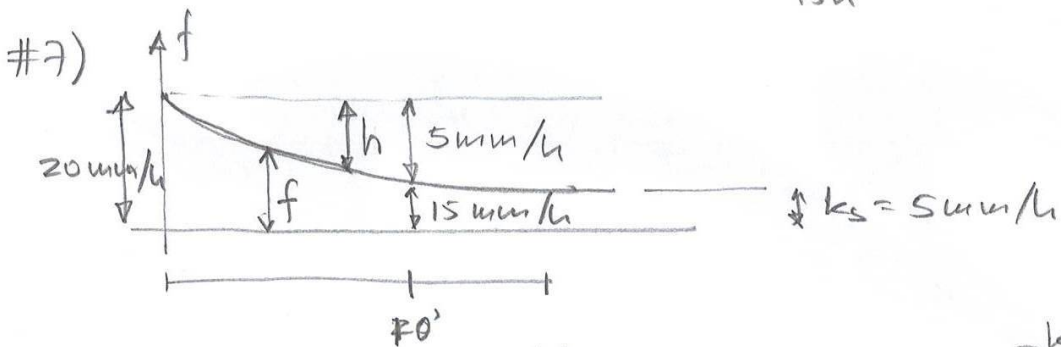 #7)
f
20 mm/h
h
5 mm/h
f
15 mm/h
ks = 5 mm/h